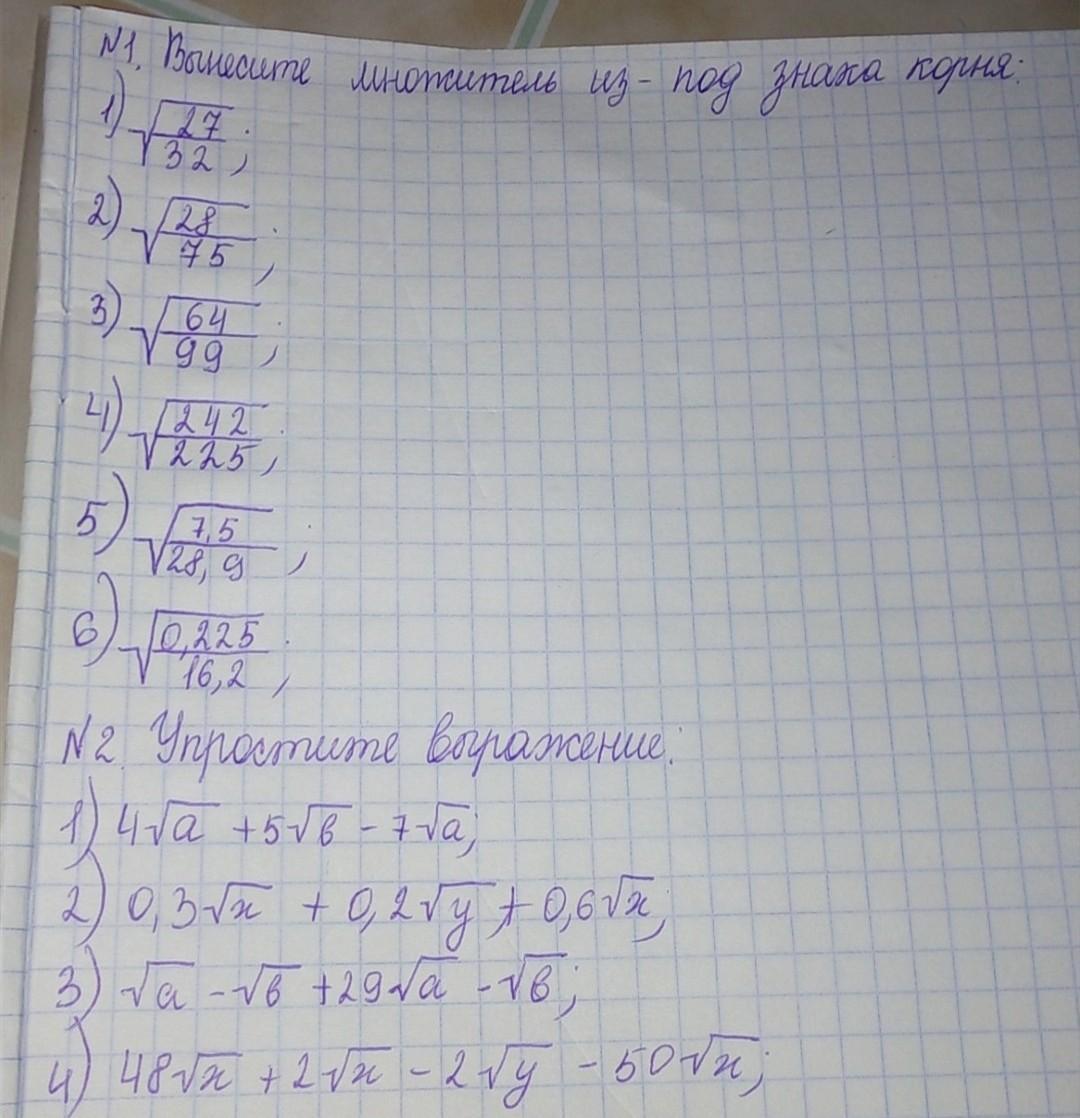 N1. Вынесите множитель из-под знака корня:
1) √(27/32);
2) √(28/75);
3) √(64/99);
4) √(242/225);
5) √(7,5/28,9);
6) √(0,225/16,2);
N2. Упростите выражение:
1) 4√a + 5√в - 7√a;
2) 0,3√x + 0,2√y + 0,6√x;
3) √a - √в + 29√a - √в;
4) 48√x + 2√x - 2√y - 50√x;